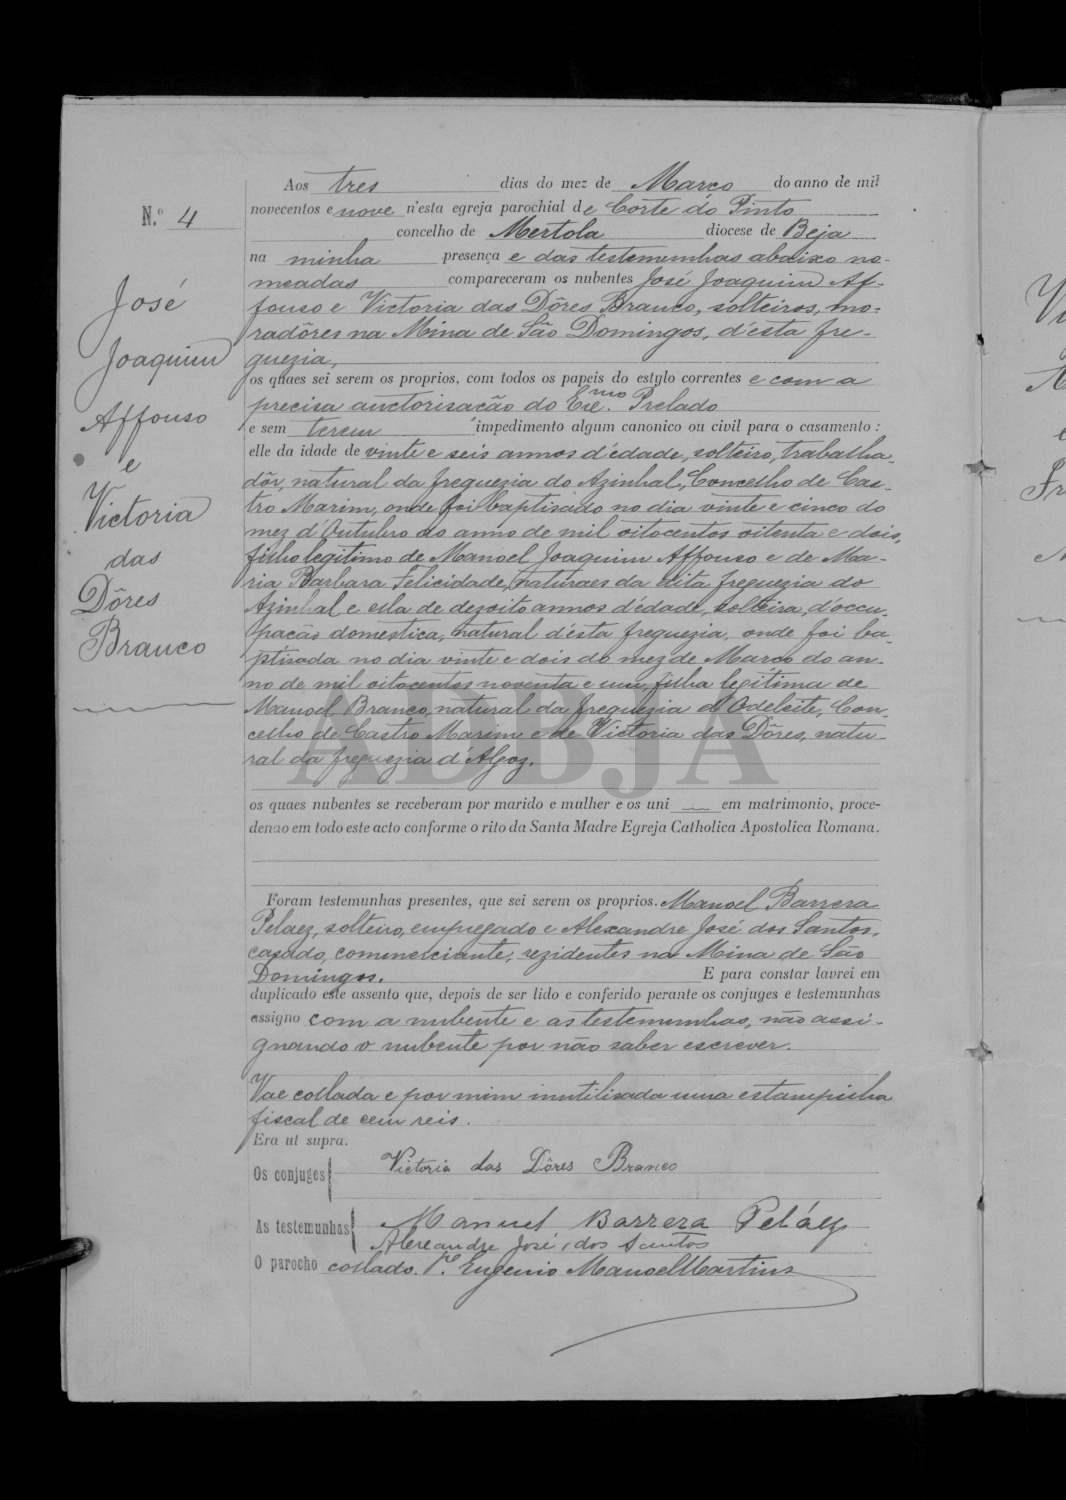 N.º 4
José
Joaquim
Affonso
e
Victoria
das
Dôres
Branco
Aos tres dias do mez de Março do anno de mil
novecentos e nove n'esta egreja parochial de Corte do Pinto
concelho de Mertola diocese de Beja
na minha presença e das testemunhas abaixo no-
meadas compareceram os nubentes José Joaquim Af-
fonso e Victoria das Dôres Branco, solteiros, mo-
radôres na Mina de São Domingos, d'esta fre-
guezia,
os quaes sei serem os proprios, com todos os papeis do estylo correntes e com a
precisa auctorisacão do Exc.mo Prelado
e sem terem impedimento algum canonico ou civil para o casamento:
elle da idade de vinte e seis annos d'édade, solteiro, trabalha-
dôr, natural da freguezia do Azinhal, Concelho de Cas-
tro Marim, onde foi baptisado no dia vinte e cinco do
mez d'Outubro do anno de mil oitocentos oitenta e dois,
filho legitimo de Manoel Joaquim Affonso e de Ma-
ria Barbara Felicidade, naturaes da dita freguezia do
Azinhal e ella de dezoito annos d'édade, solteira, d'occu-
pacão domestica, natural d'ésta freguezia, onde foi ba-
ptisada no dia vinte e dois do mez de Março do an-
no de mil oitocentos noventa e um, filha legitima de
Manoel Branco, natural da freguezia d'Odeleite, Con-
celho de Castro Marim e de Victoria das Dôres, natu-
ral da freguezia d'Algoz.
ADBJA
os quaes nubentes se receberam por marido e mulher e os uni em matrimonio, proce-
dendo em todo este acto conforme o rito da Santa Madre Egreja Catholica Apostolica Romana.
Foram testemunhas presentes, que sei serem os proprios. Manoel Barrera
Pelaez, solteiro, empregado e Alexandre José dos Santos,
casado, commerciante, rezidentes na Mina de São
Domingos. E para constar lavrei em
duplicado este assento que, depois de ser lido e conferido perante os conjuges e testemunhas
assigno com a nubente e as testemunhas, não assi-
gnando o nubente por não saber escrever.
Vae collada e por mim inutilisada uma estampilha
fiscal de cem reis.
Era ut supra.
Os conjuges Victoria das Dôres Branco
As testemunhas Manuel Barrera Peláez
Alexandre José dos Santos
O parocho collado. P.e Eugenio Manoel Martins